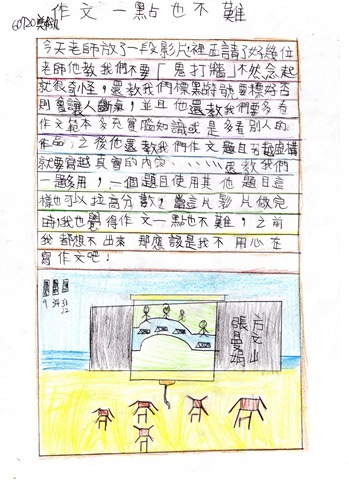 作文一點也不難
今天老師放了一段影片裡面請了好幾位
老師他教我們不要「鬼打牆」不然念起
就很奇怪,還教我們標點符號要標好否
則會讓人斷氣,並且他還教我們要多看
作文範本多充實腦知識或是多看別人的
作品,之後他還教我們作文題目
就要穿越真實的內容……還教我們
一題多用,一個題目使用其他題目這
樣也可以拉高分數,當這片影片做完
時我也覺得作文一點也不難,之前
我都想不出來那應該是我不用心在
寫作文吧!
方文山
張曼娟